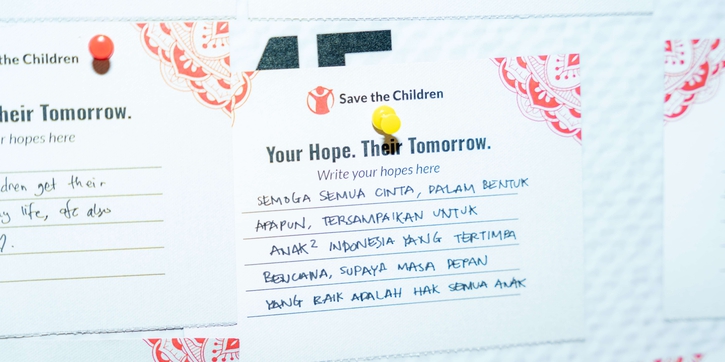 the Children
Their Tomorrow.
r hopes here
dren get their
y life, etc also
Save the Children
Your Hope. Their Tomorrow.
Write your hopes here
SEMOGA SEMUA CINTA, DALAM BENTUK
APAPUN, TERSAMPAIKAN UNTUK
ANAK² INDONESIA YANG TERTIMPA
BENCANA, SUPAYA MASA DEPAN
YANG BAIK ADALAH HAK SEMUA ANAK